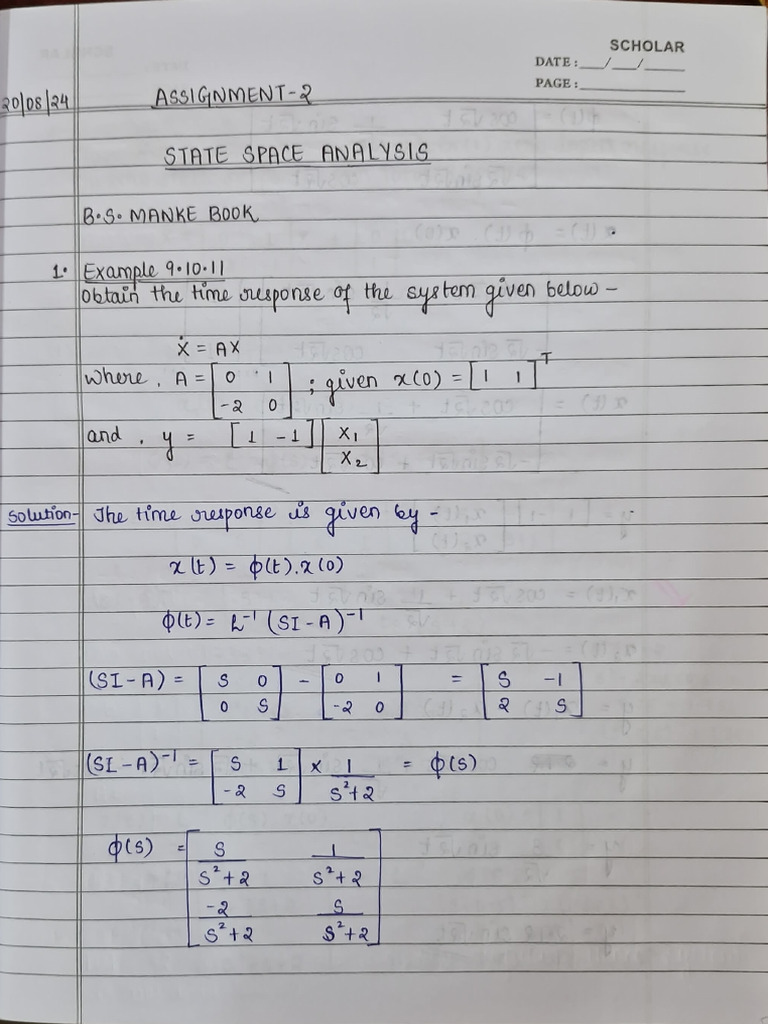 SCHOLAR
DATE:__/__/____
PAGE:__________
20/08/24 ASSIGNMENT-2
STATE SPACE ANALYSIS
B.S. MANKE BOOK
1. Example 9.10.11
Obtain the time response of the system given below -
Ẋ = AX
where, A = [0 1; -2 0] ; given x(0) = [1 1]ᵀ
and, y = [1 -1] [X₁; X₂]
Solution- The time response is given by -
x(t) = ϕ(t).x(0)
ϕ(t) = L⁻¹ (SI-A)⁻¹
(SI-A) = [S 0; 0 S] - [0 1; -2 0] = [S -1; 2 S]
(SI-A)⁻¹ = [S 1; -2 S] × 1/(S²+2) = ϕ(s)
ϕ(s) = [S/(S²+2) 1/(S²+2); -2/(S²+2) S/(S²+2)]